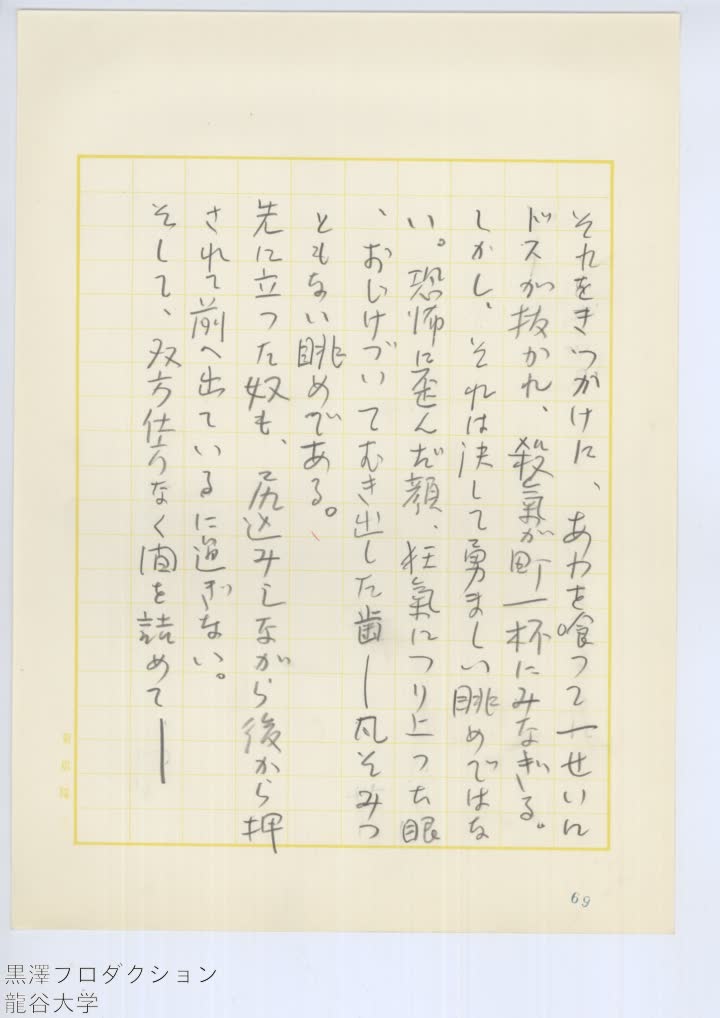 それをきつかけに、あわを喰つて一せいに
ドスが抜かれ、殺氣が町一杯にみなぎる。
しかし、それは決して勇ましい眺めではな
い。恐怖に歪んだ顔、狂氣につり上つた眼
、おじけづいてむき出した歯―凡そみつ
ともない眺めである。
先に立つた奴も、尻込みしながら後から押
されて前へ出ているに過ぎない。
そして、双方仕方なく間を詰めて―
69
黒澤プロダクション
龍谷大学